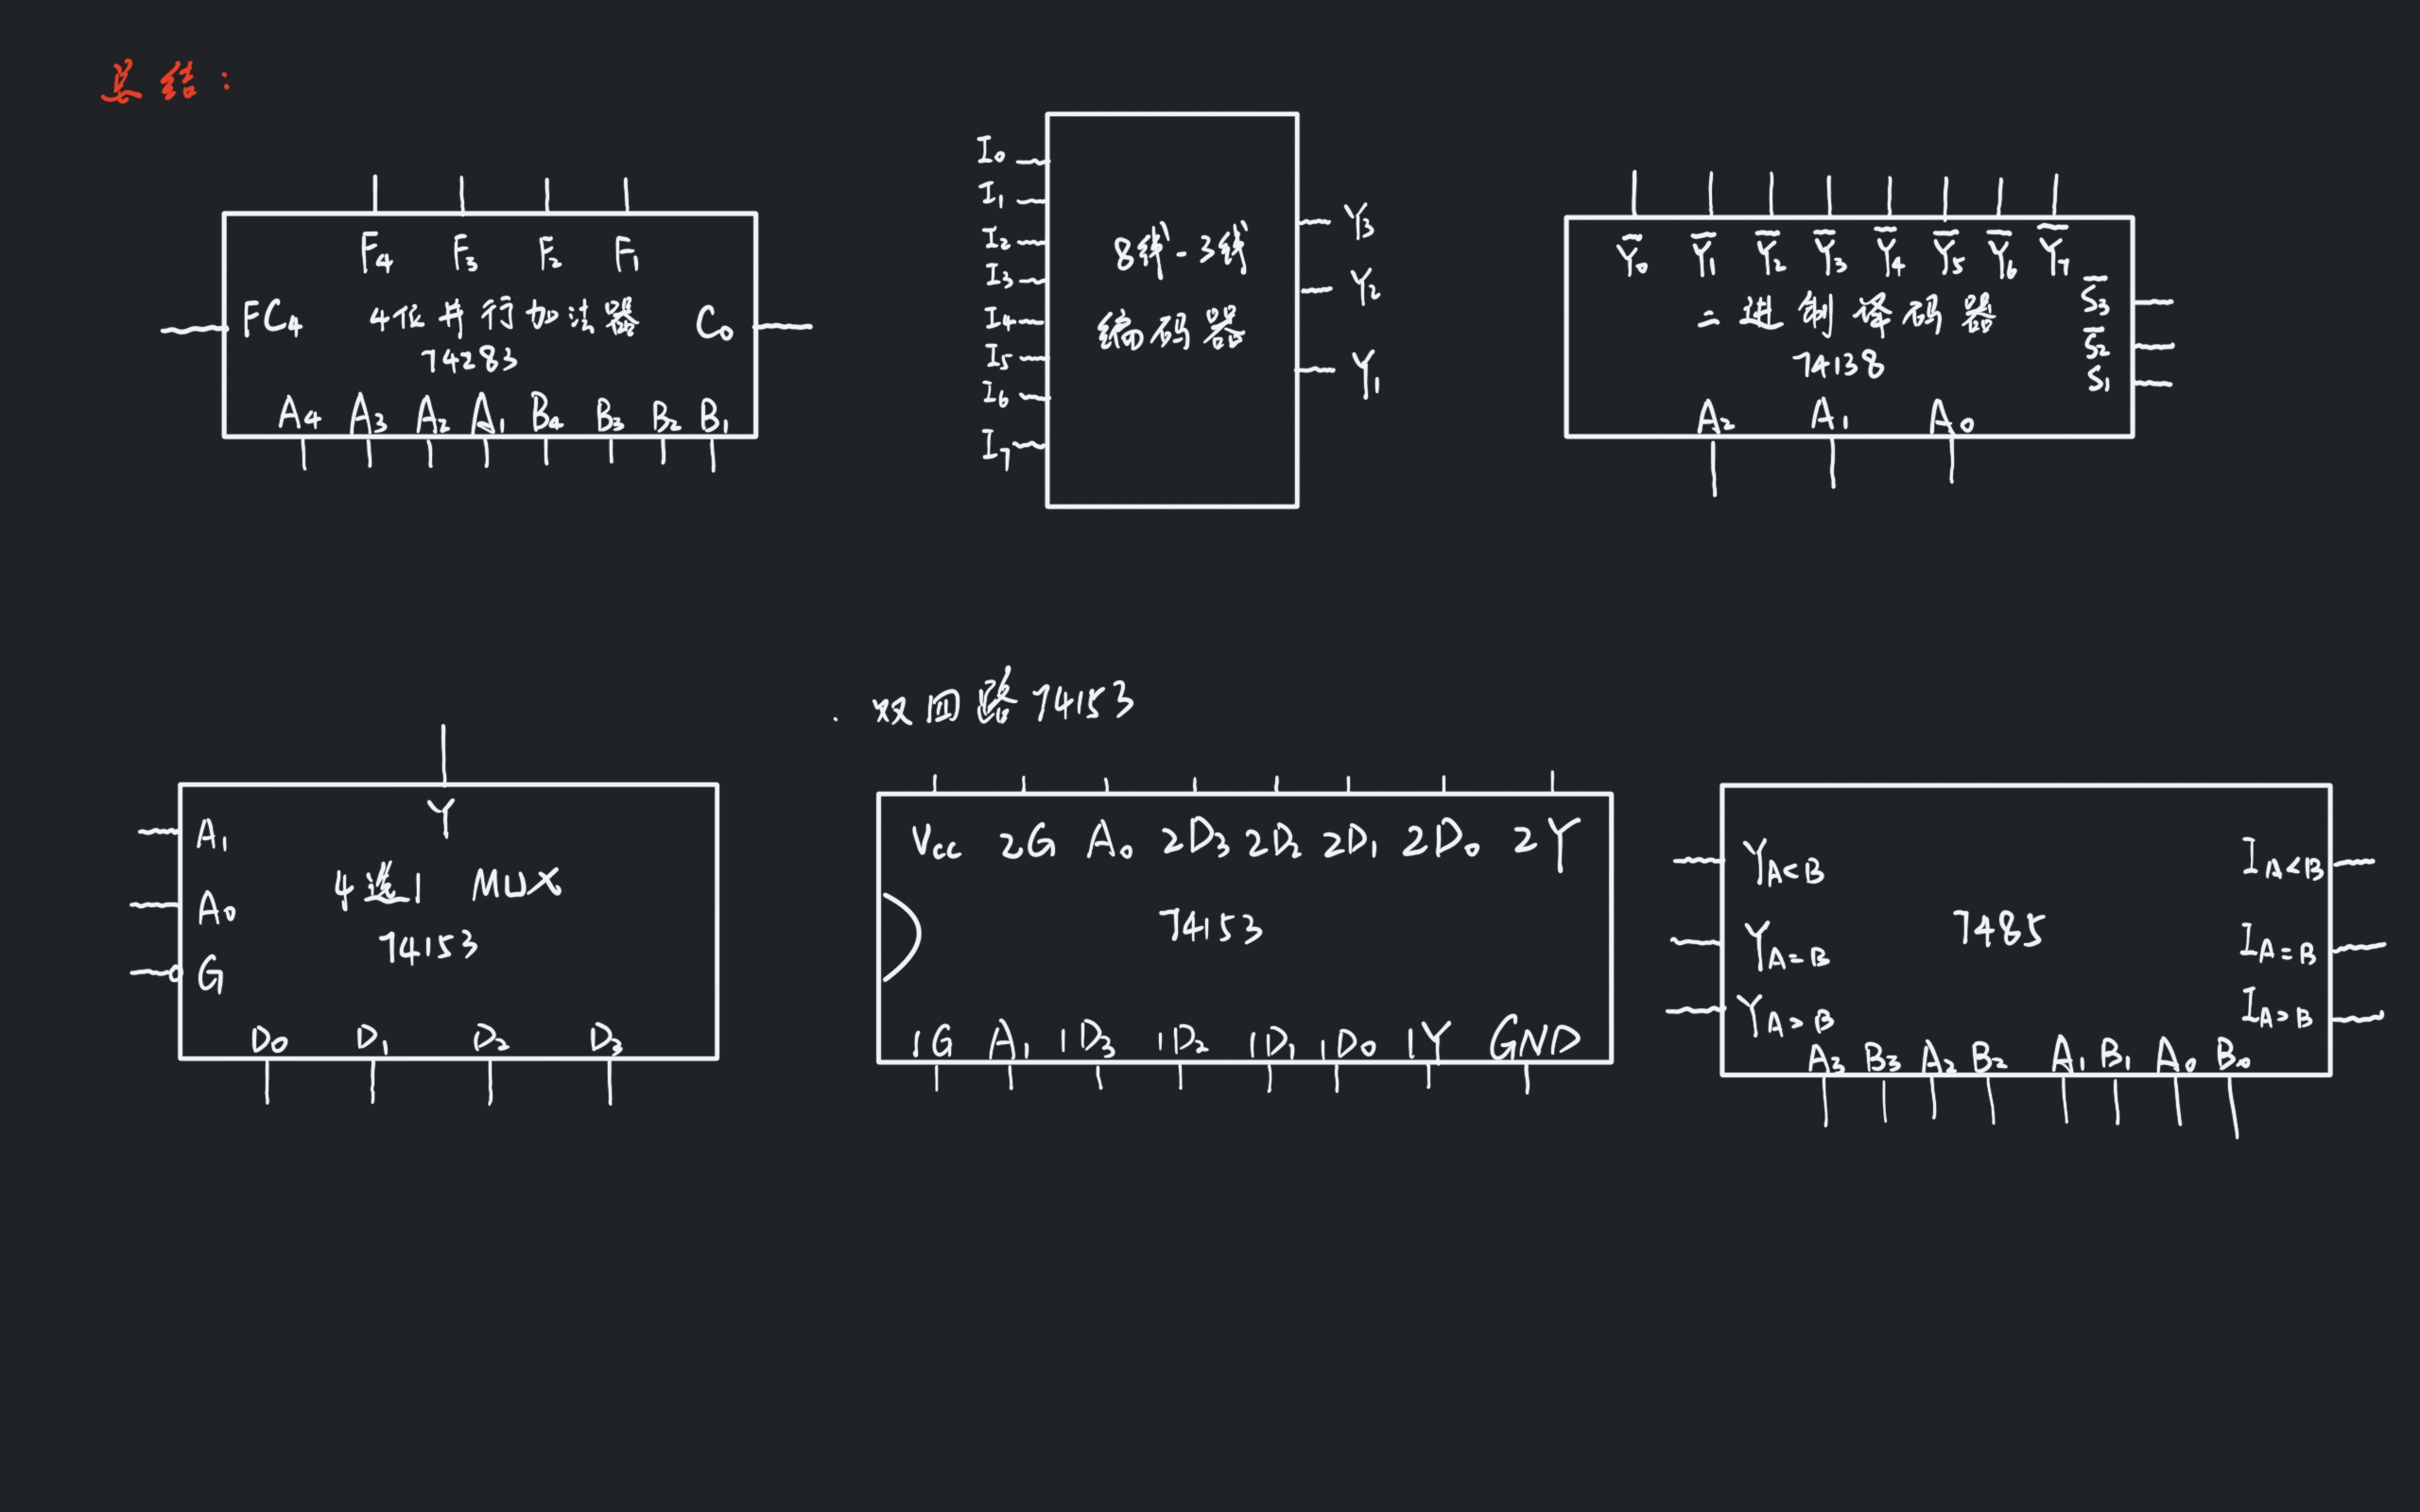 总结:
F4 F3 F2 F1
FC4 4位并行加法器 C0
74283
A4 A3 A2 A1 B4 B3 B2 B1
I0
I1
I2
I3
I4
I5
I6
I7
8线-3线
编码器
Y3
Y2
Y1
Y̅0 Y̅1 Y̅2 Y̅3 Y̅4 Y̅5 Y̅6 Y̅7
二进制译码器
74138
S̅3
S̅2
S1
A2 A1 A0
Y
A1
A0
G
4选1 MUX
74153
D0 D1 D2 D3
· 双四路74153
Vcc 2G A0 2D3 2D2 2D1 2D0 2Y
74153
1G A1 1D3 1D2 1D1 1D0 1Y GND
YA<B
YA=B
YA>B
7485
IA<B
IA=B
IA>B
A3 B3 A2 B2 A1 B1 A0 B0